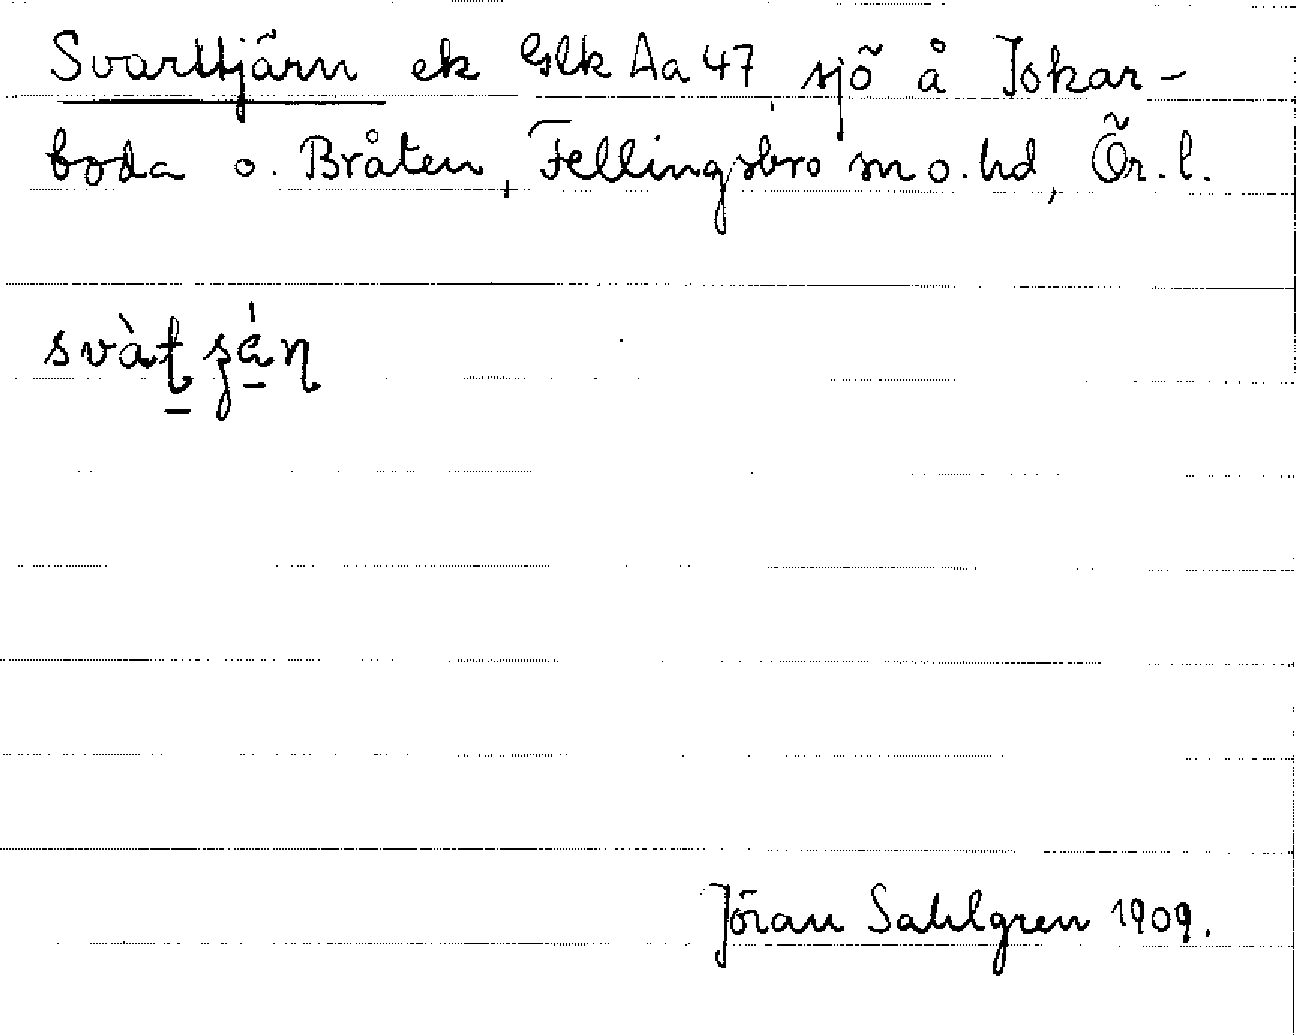 Svarttjärn ek Glk Aa 47, sjö å Jokar-
boda o. Bråten, Fellingsbro sn o. hd, Ör. l.
Jöran Sahlgren 1909.